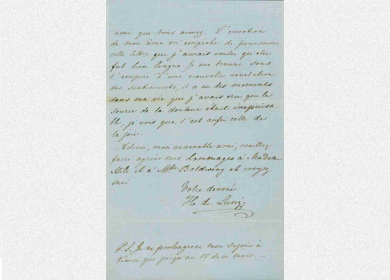 ame que vous aimez. L'émotion
de mon âme m'empêche de poursuivre
cette lettre que j'aurais voulu qu'elle
fut bien longue. Je me trouve sous
l'empire d'une nouvelle
des sentiments, il a eu des moments
dans ma vie que j'aurais cru que la
source de la douleur était
je vois que l'est aussi celle de
la joie.
Adieu, mon honorable ami, veuillez
faire agréer mes hommages à Madame
et à Mlle Baldwin et croyez
moi
Votre dévoué
H. de
P.S. Je ne prolongerai mon séjour à
que jusqu'au 15 de ce mois.